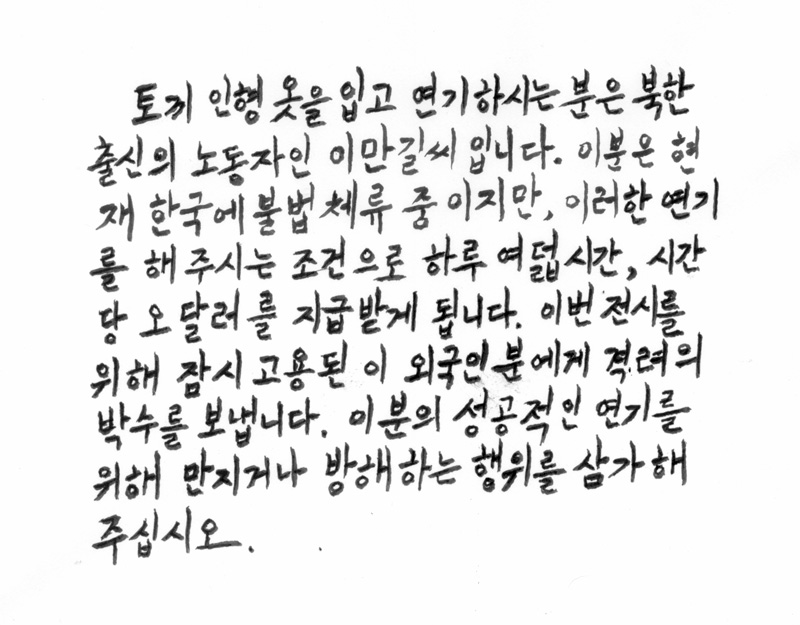 토끼 인형 옷을 입고 연기하시는 분은 북한
출신의 노동자인 이만길씨 입니다. 이분은 현
재 한국에 불법 체류 중 이지만, 이러한 연기
를 해 주시는 조건으로 하루 여덟시간, 시간
당 오 달러를 지급받게 됩니다. 이번 전시를
위해 잠시 고용된 이 외국인 분에게 격려의
박수를 보냅니다. 이분의 성공적인 연기를
위해 만지거나 방해하는 행위를 삼가 해
주십시오.